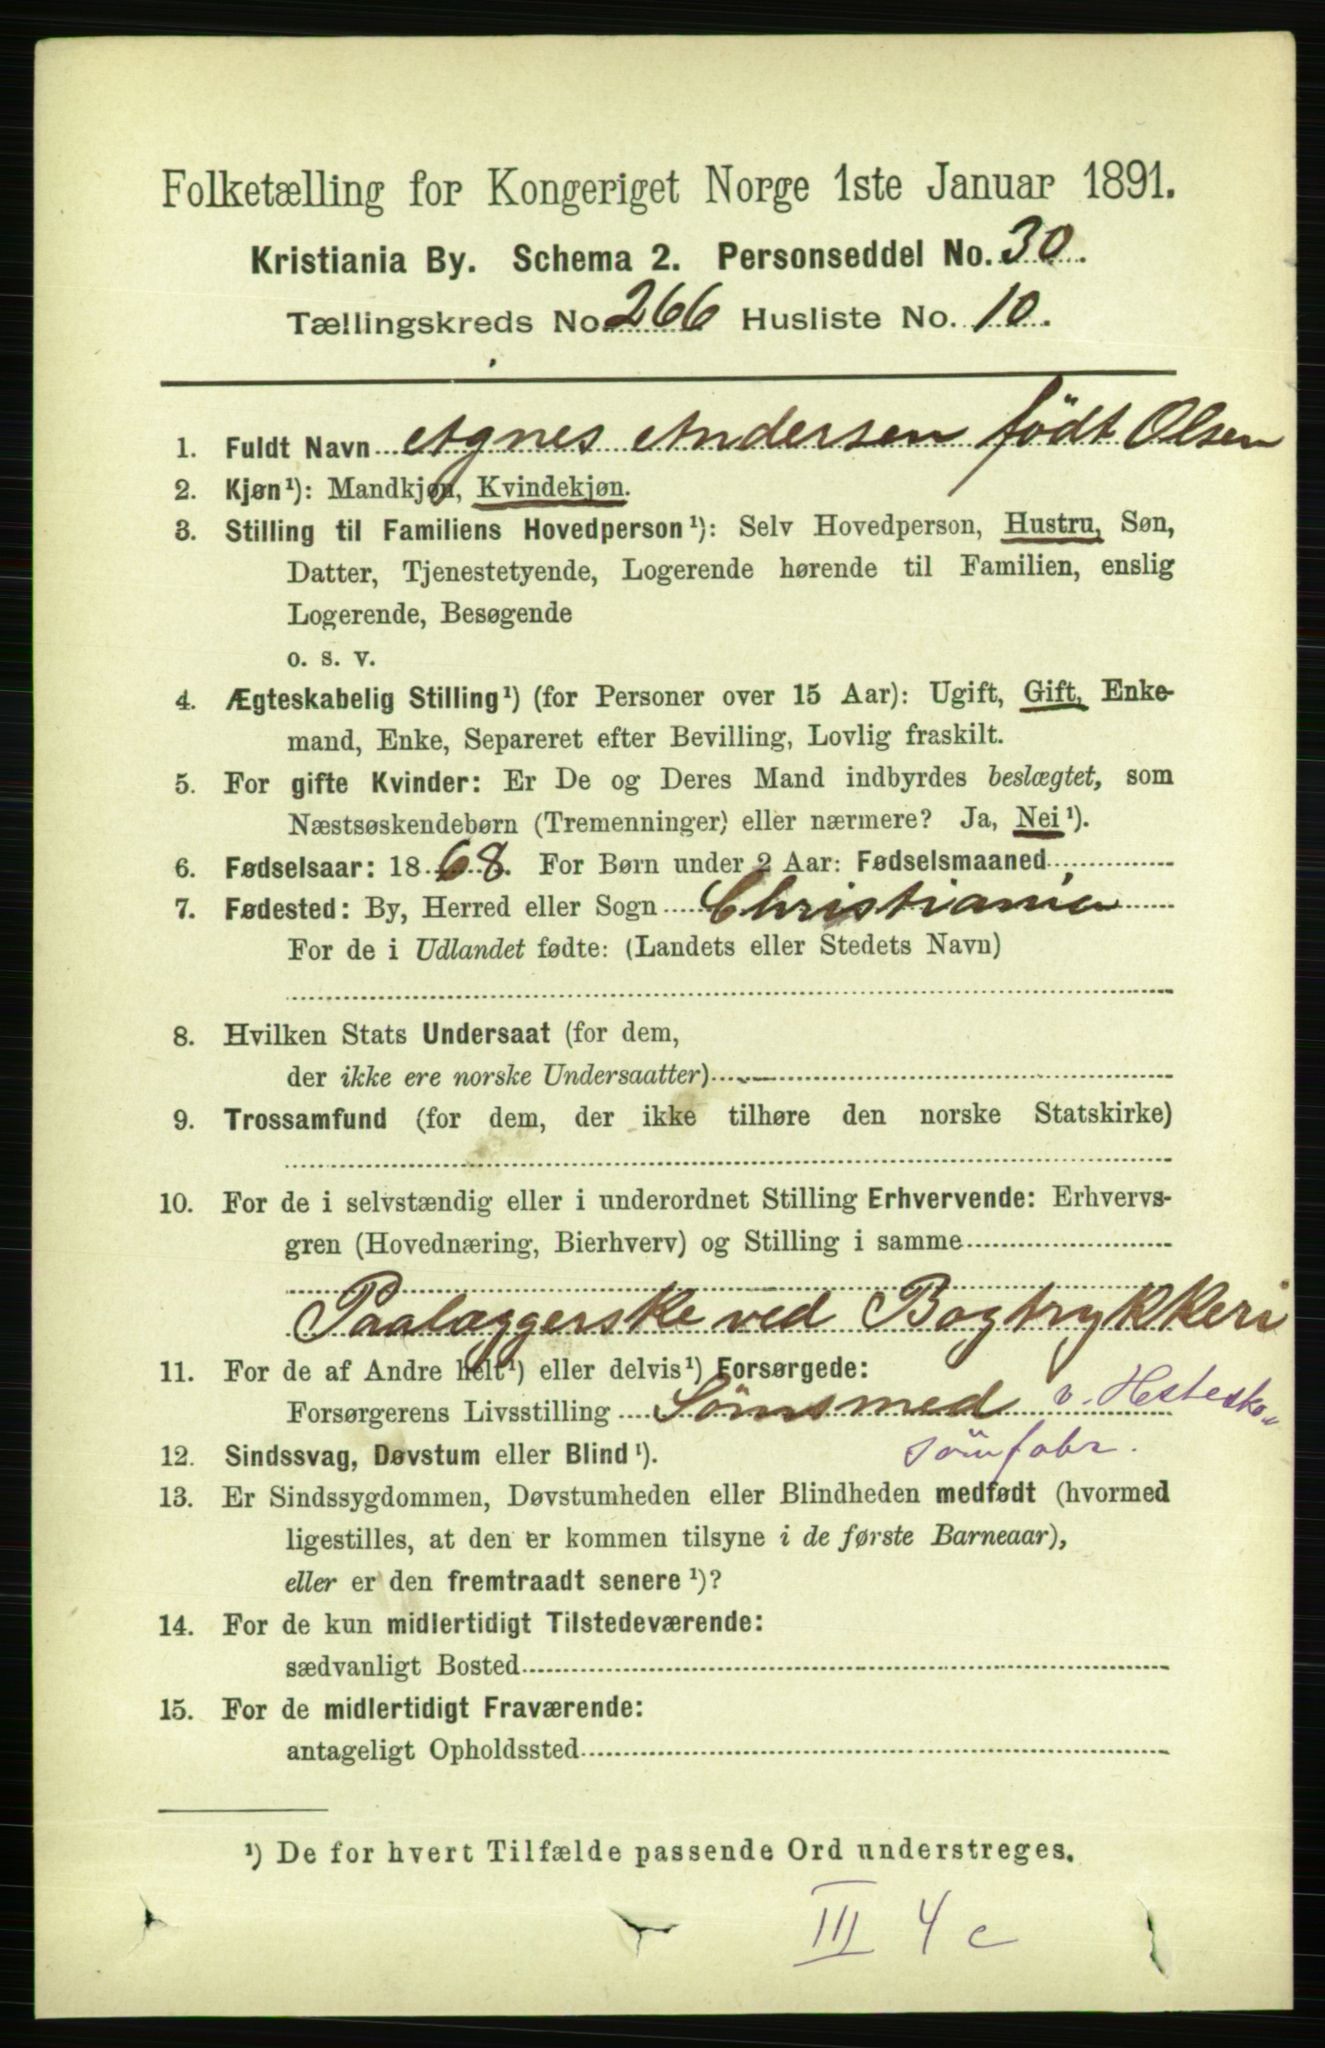 Folketælling for Kongeriget Norge 1ste Januar 1891.
Kristiania By. Schema 2. Personseddel No. 30.
Tællingskreds No. 266 Husliste No. 10.
1. Fuldt Navn Agnes Andersen født Olsen
2. Kjøn¹): Mandkjøn, Kvindekjøn.
3. Stilling til Familiens Hovedperson¹): Selv Hovedperson, Hustru, Søn,
Datter, Tjenestetyende, Logerende hørende til Familien, enslig
Logerende, Besøgende
o. s. v.
4. Ægteskabelig Stilling¹) (for Personer over 15 Aar): Ugift, Gift, Enke-
mand, Enke, Separeret efter Bevilling, Lovlig fraskilt.
5. For gifte Kvinder: Er De og Deres Mand indbyrdes beslægtet, som
Næstsøskendebørn (Tremenninger) eller nærmere? Ja, Nei¹).
6. Fødselsaar: 1868. For Børn under 2 Aar: Fødselsmaaned
7. Fødested: By, Herred eller Sogn Christiania
For de i Udlandet fødte: (Landets eller Stedets Navn)
8. Hvilken Stats Undersaat (for dem,
der ikke ere norske Undersaatter)
9. Trossamfund (for dem, der ikke tilhøre den norske Statskirke)
10. For de i selvstændig eller i underordnet Stilling Erhvervende: Erhvervs-
gren (Hovednæring, Bierhverv) og Stilling i samme
Paalæggerske ved Bogtrykkeri
11. For de af Andre helt¹) eller delvis¹) Forsørgede:
Forsørgerens Livsstilling Sømsmed v. Hestesko-
sömfabr.
12. Sindssvag, Døvstum eller Blind¹).
13. Er Sindssygdommen, Døvstumheden eller Blindheden medfødt (hvormed
ligestilles, at den er kommen tilsyne i de første Barneaar),
eller er den fremtraadt senere¹)?
14. For de kun midlertidigt Tilstedeværende:
sædvanligt Bosted
15. For de midlertidigt Fraværende:
antageligt Opholdssted
¹) De for hvert Tilfælde passende Ord understreges.
III 4 c